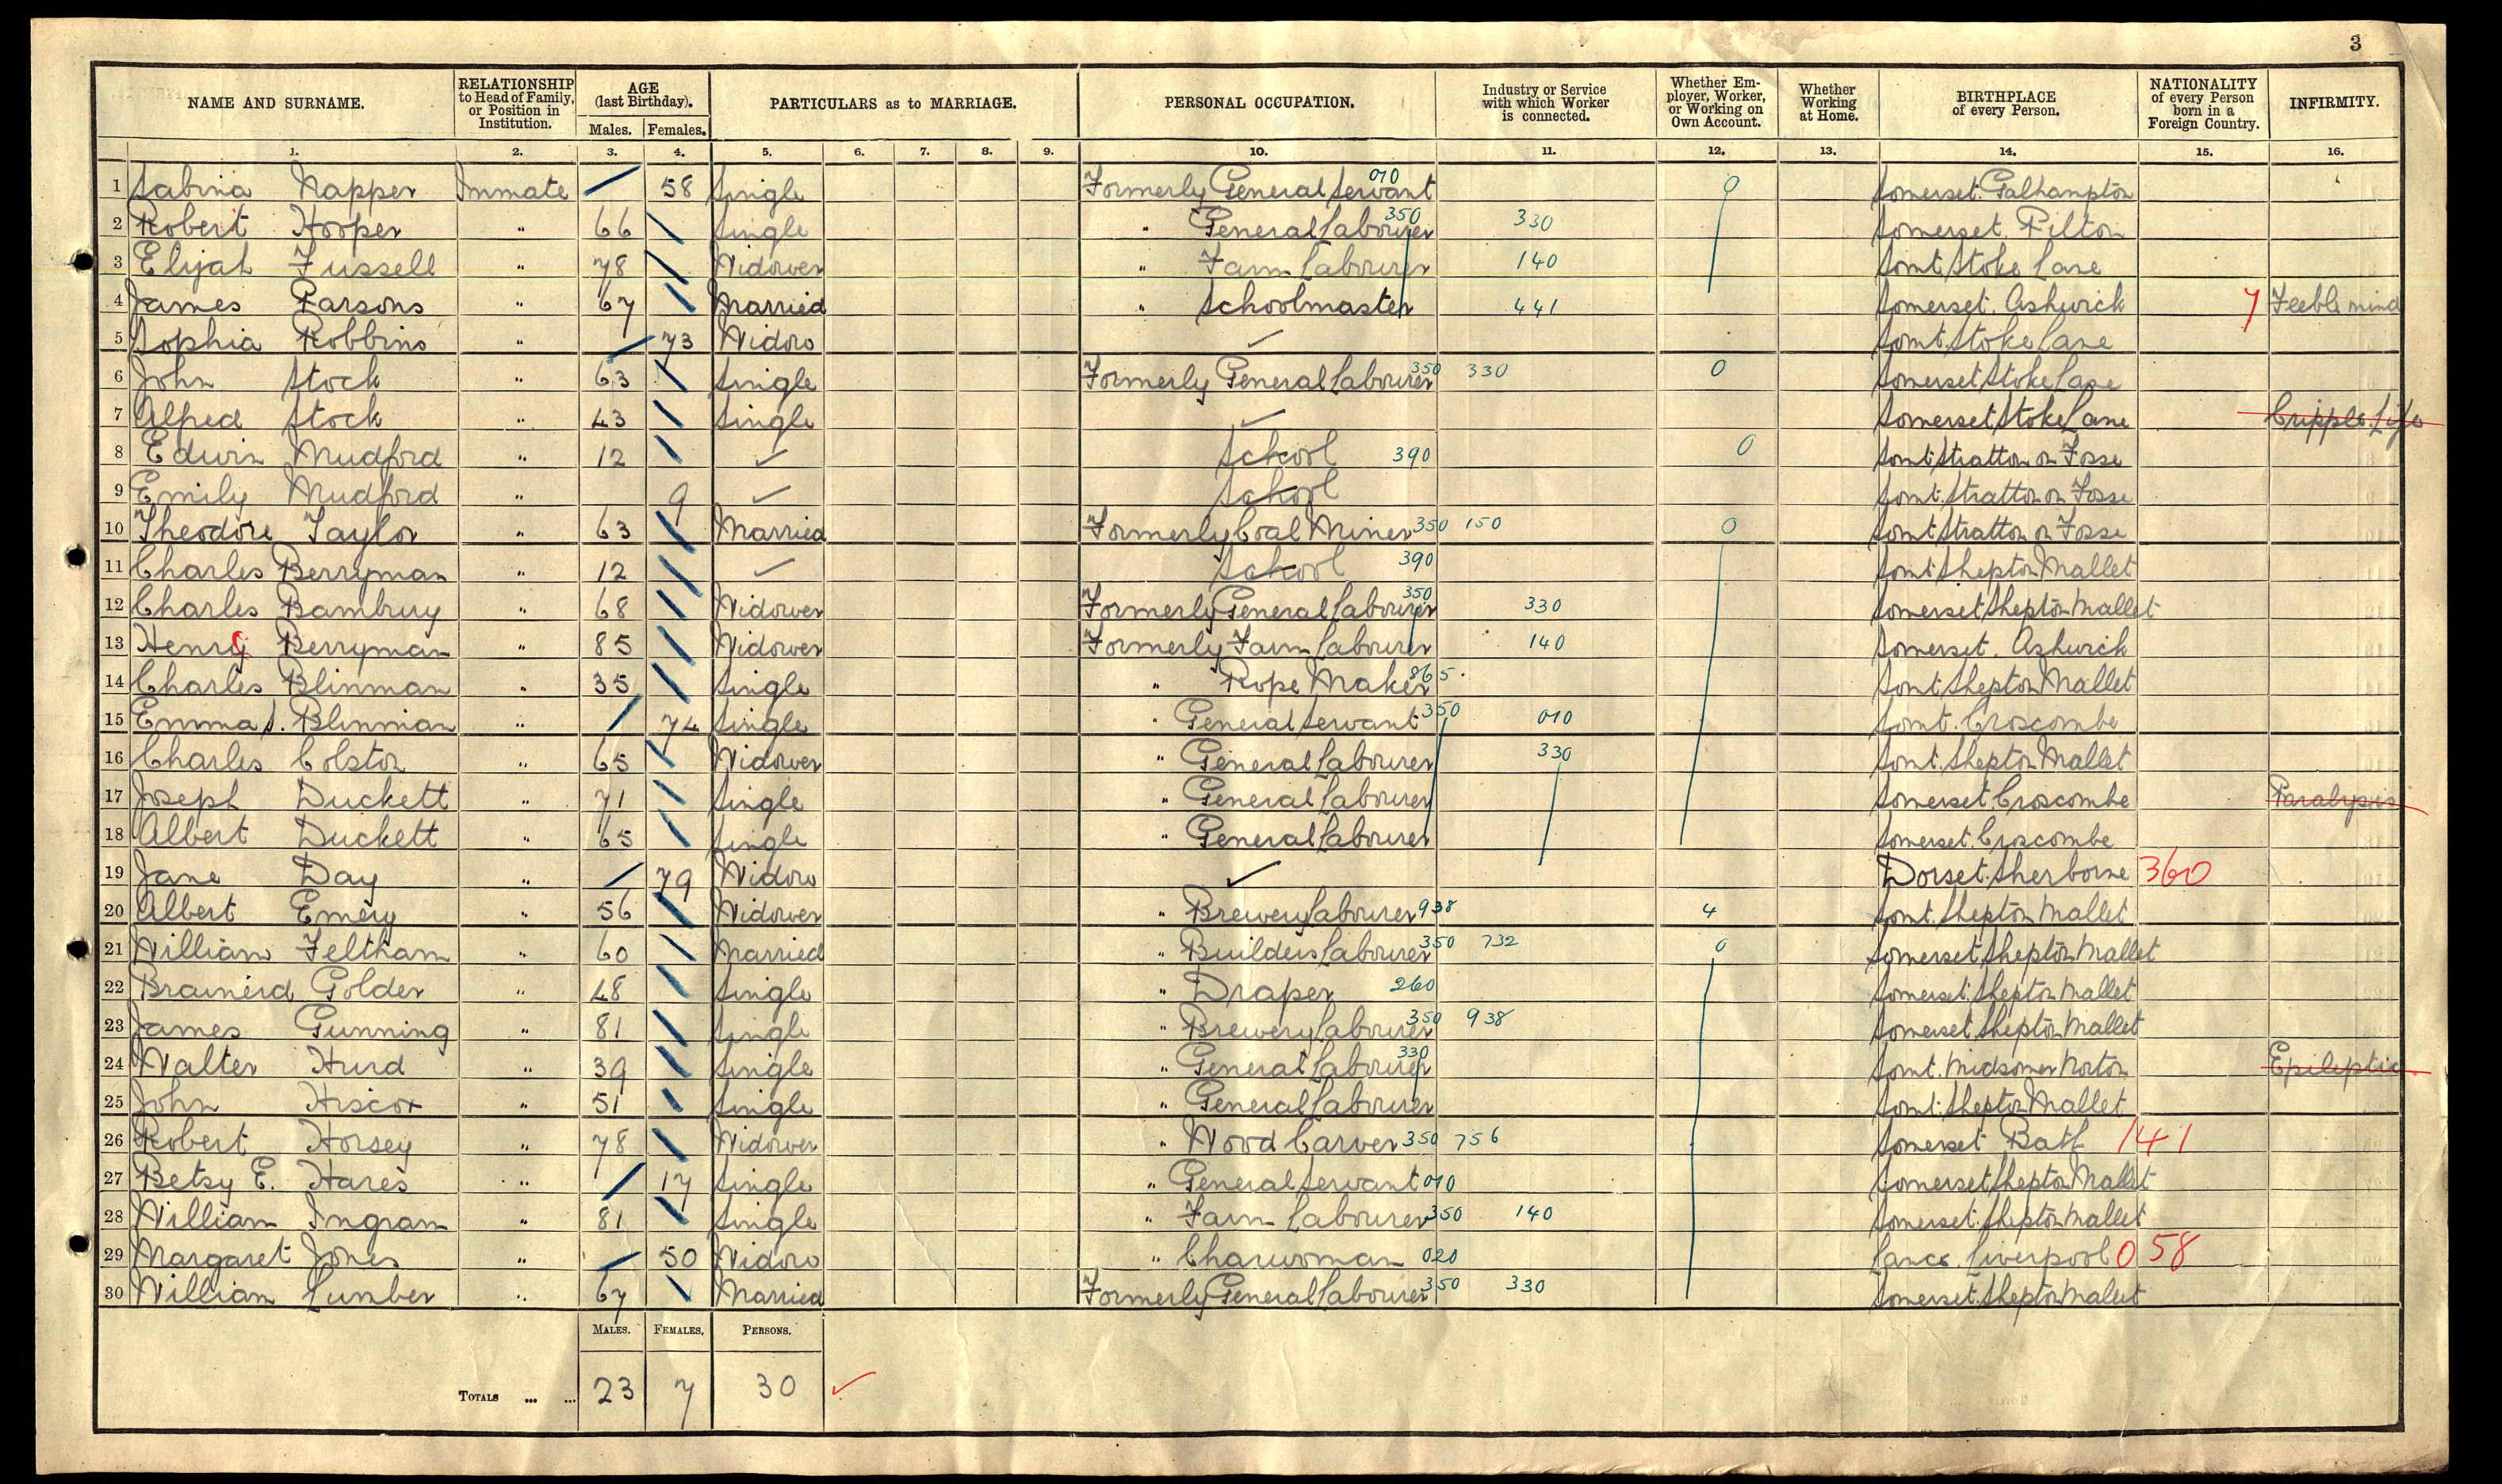 3
NAME AND SURNAME. RELATIONSHIP to Head of Family, or Position in Institution. AGE (last Birthday). Males. Females. PARTICULARS as to MARRIAGE. PERSONAL OCCUPATION. Industry or Service with which Worker is connected. Whether Employer, Worker, or Working on Own Account. Whether Working at Home. BIRTHPLACE of every Person. NATIONALITY of every Person born in a Foreign Country. INFIRMITY.
1. 2. 3. 4. 5. 6. 7. 8. 9. 10. 11. 12. 13. 14. 15. 16.
1 Sabina Napper Inmate 58 Single Formerly General Servant 010 0 Somerset. Galhampton
2 Robert Hooper " 66 Single " General Labourer 350 330 Somerset. Pilton
3 Elijah Fussell " 78 Widower " Farm Labourer 140 Somt. Stoke Lane
4 James Parsons " 67 Married " Schoolmaster 441 Somerset. Ashwick 7 Feeble mind
5 Sophia Robbins " 73 Widow ✓ Somt. Stoke Lane
6 John Stock " 63 Single Formerly General Labourer 350 330 0 Somerset Stoke Lane
7 Alfred Stock " 43 Single ✓ Somerset Stoke Lane Cripple. Life
8 Edwin Mudford " 12 ✓ School 390 0 Somt Stratton on Fosse
9 Emily Mudford " 9 ✓ School Somt. Stratton on Fosse
10 Theodore Taylor " 63 Married Formerly Coal Miner 350 150 0 Somt Stratton on Fosse
11 Charles Berryman " 12 ✓ School 390 Somt. Shepton Mallet
12 Charles Bambury " 68 Widower Formerly General Labourer 350 330 Somerset Shepton Mallet
13 Henry Berryman " 85 Widower Formerly Farm Labourer 140 Somerset. Ashwick
14 Charles Blinman " 35 Single " Rope Maker 865 Somt. Shepton Mallet
15 Emma S. Blinman " 74 Single " General Servant 350 010 Somt. Croscombe
16 Charles Colston " 65 Widower " General Labourer 330 Somt. Shepton Mallet
17 Joseph Duckett " 71 Single " General Labourer Somerset. Croscombe Paralysis
18 Albert Duckett " 65 Single " General Labourer Somerset. Croscombe
19 Jane Day " 79 Widow ✓ Dorset. Sherborne 360
20 Albert Emery " 56 Widower " Brewery Labourer 938 4 Somt. Shepton Mallet
21 William Feltham " 60 Married " Builders Labourer 350 732 0 Somerset Shepton Mallet
22 Brainerd Golder " 48 Single " Draper 260 Somerset. Shepton Mallet
23 James Gunning " 81 Single " Brewery Labourer 350 938 Somerset Shepton Mallet
24 Walter Hurd " 39 Single " General Labourer 330 Somt. Midsomer Norton Epileptic
25 John Hiscox " 51 Single " General Labourer Somt. Shepton Mallet
26 Robert Horsey " 78 Widower " Wood Carver 350 756 Somerset Bath 141
27 Betsy E. Hares " 17 Single " General Servant 010 Somerset Shepton Mallet
28 William Ingram " 81 Single " Farm Labourer 350 140 Somerset. Shepton Mallet
29 Margaret Jones " 50 Widow " Charwoman 020 Lancs. Liverpool 058
30 William Lumber " 67 Married Formerly General Labourer 350 330 Somerset. Shepton Mallet
MALES. FEMALES. PERSONS.
TOTALS ... ... 23 7 30 ✓